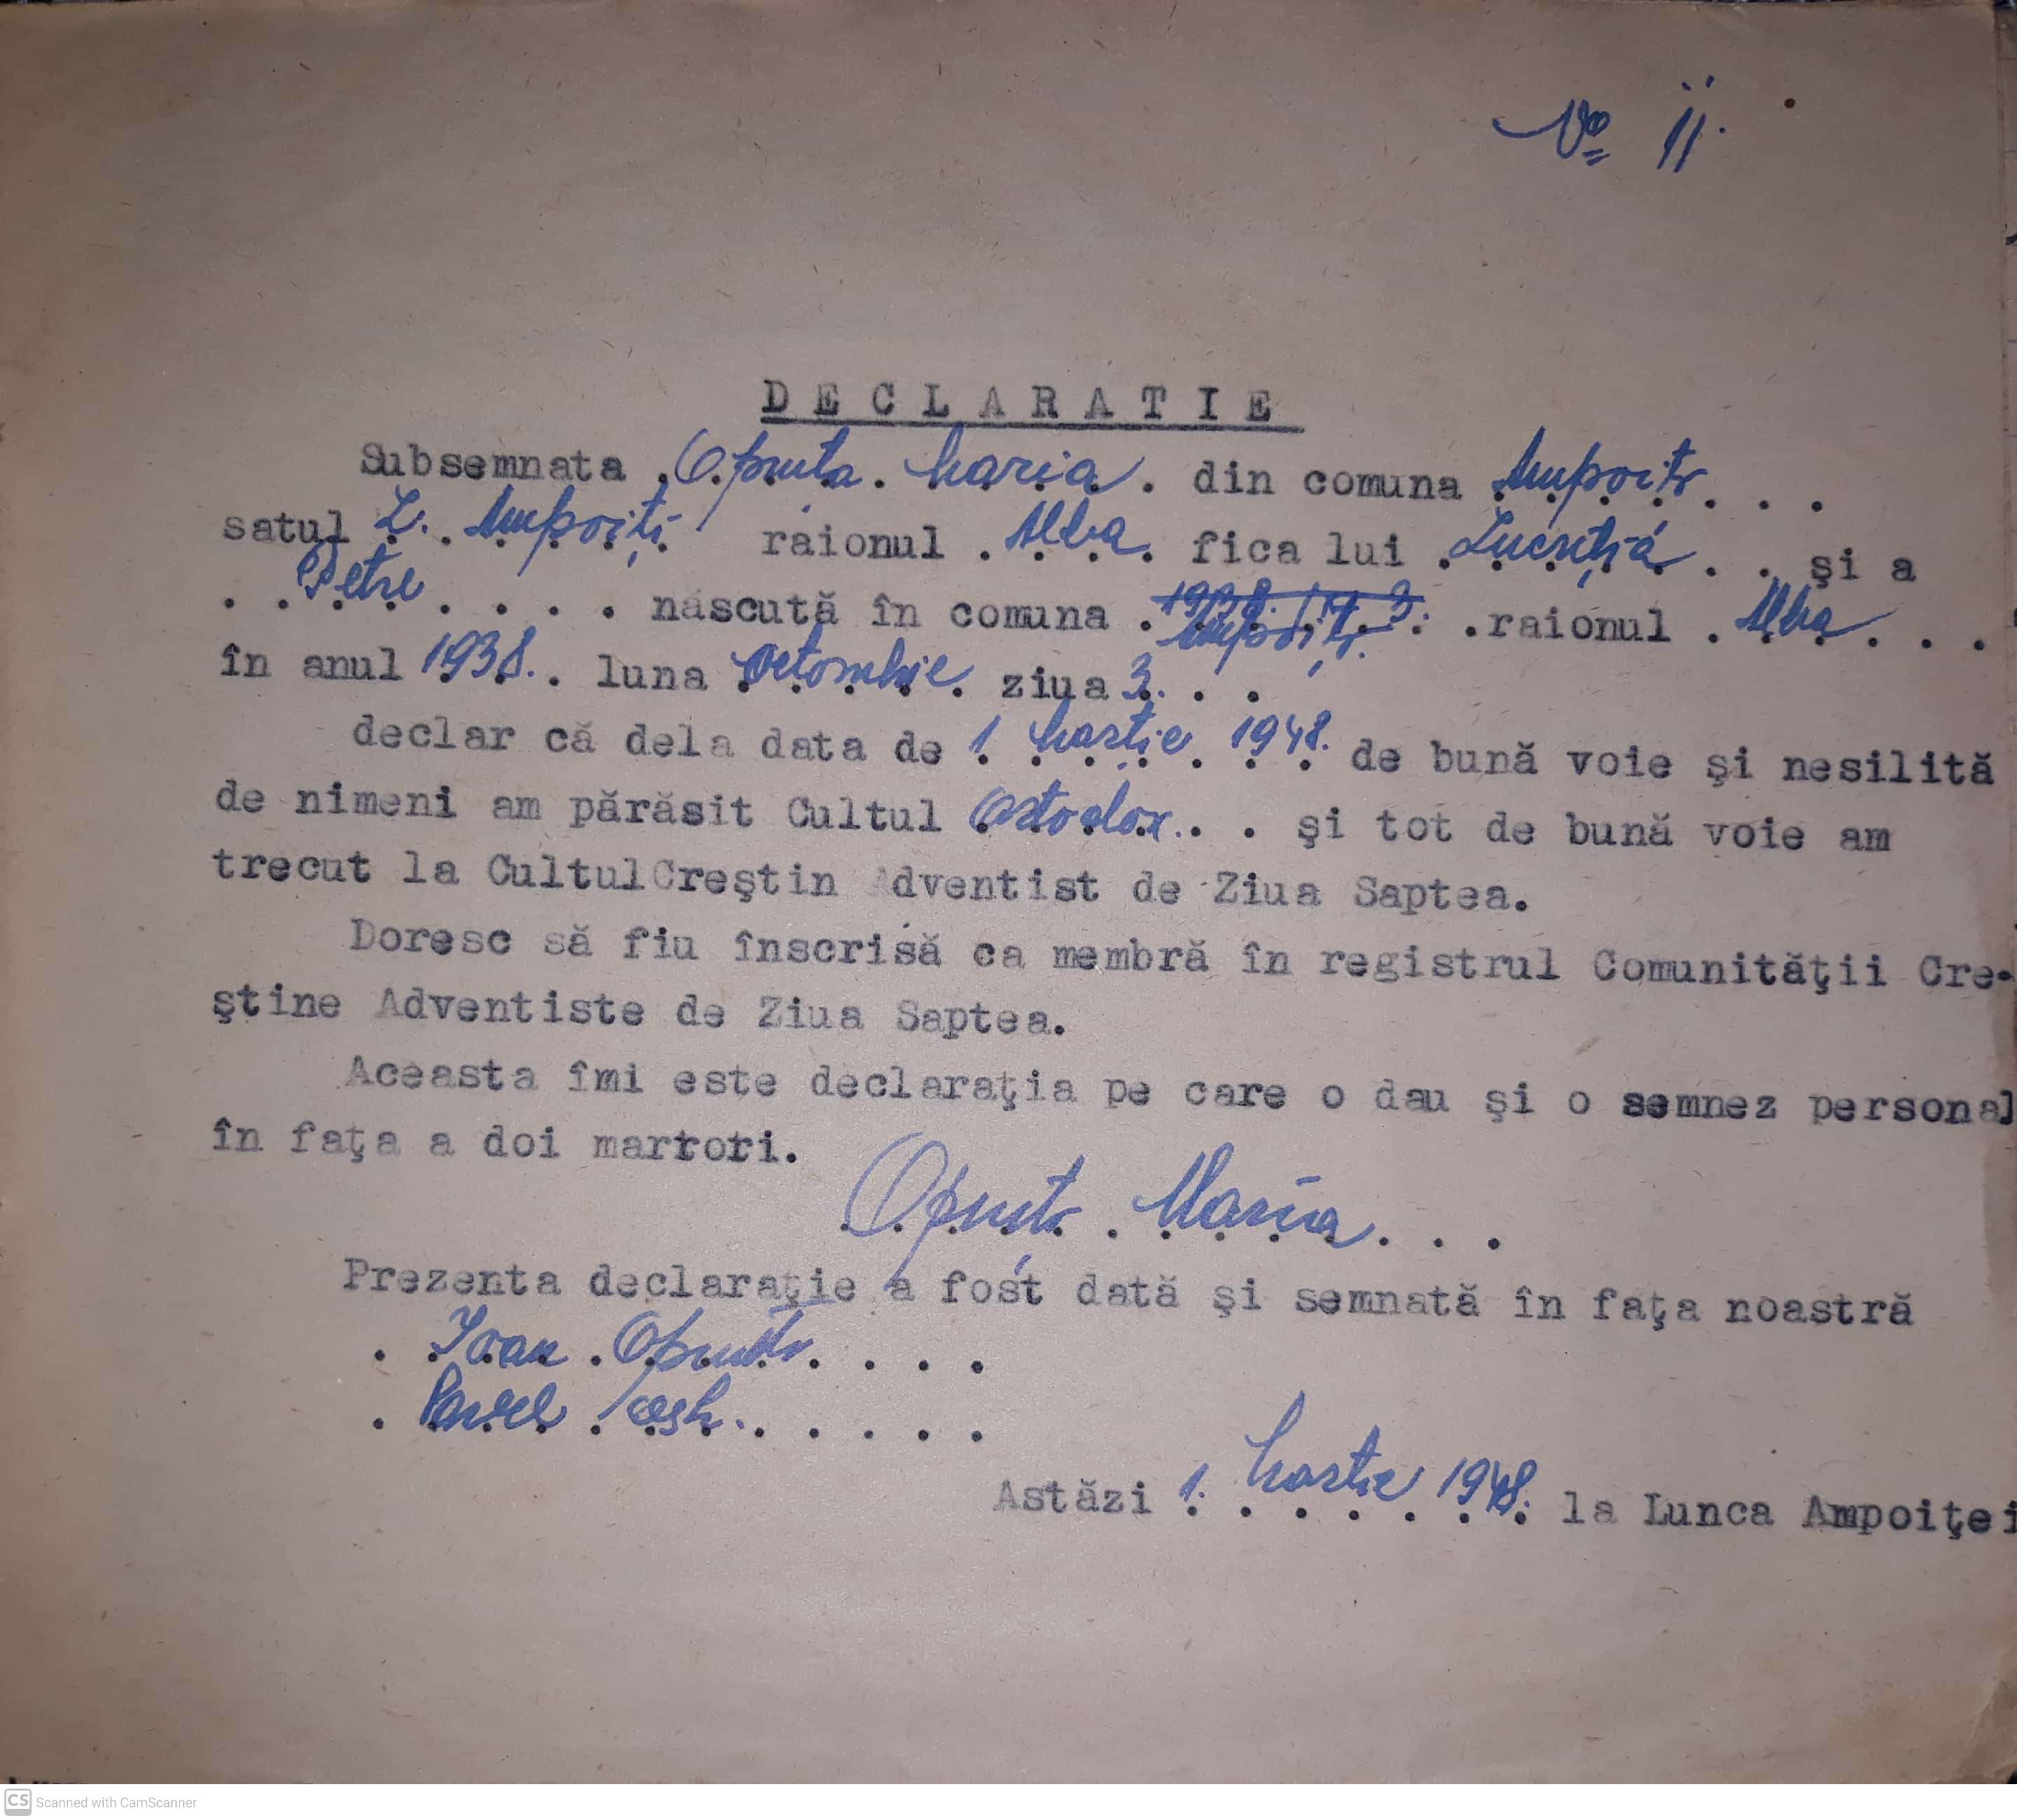 No 11.
DECLARATIE
Subsemnata Opruța Maria din comuna Ampoița
satul L. Ampoiți raionul Alba fica lui Lucreția și a
Petre născută în comuna Ampoița raionul Alba
în anul 1938. luna Octombrie ziua 3.
declar că dela data de 1 Martie 1948. de bună voie şi nesilită
de nimeni am părăsit Cultul Ortodox şi tot de bună voie am
trecut la CultulCreştin Adventist de Ziua Saptea.
Doresc să fiu înscrisă ca membră în registrul Comunităţii Cre-
ştine Adventiste de Ziua Saptea.
Aceasta îmi este declaraţia pe care o dau şi o semnez personal
în faţa a doi martori.
Opruța Maria
Prezenta declaraţie a fost dată şi semnată în faţa noastră
Ioan Opruța
Pavel
Astăzi 1. Martie 1948. la Lunca Ampoiţei
CS Scanned with CamScanner